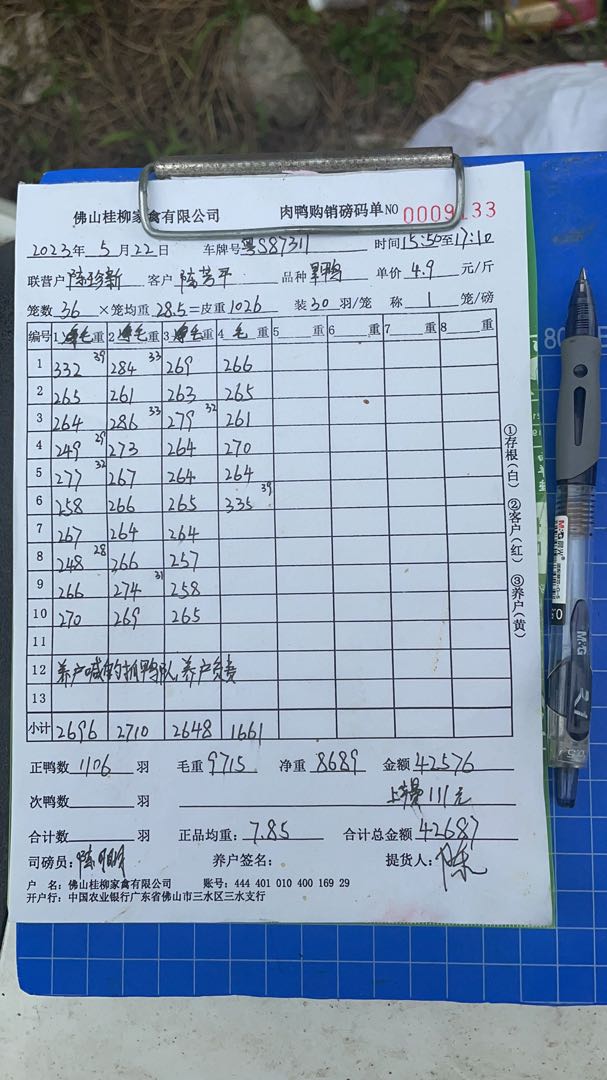 佛山桂柳家禽有限公司 肉鸭购销磅码单 NO 0009133
2023年 5月 22日 车牌号 粤S87311 时间 15:50至17:10
联营户 陈珍新 客户 陈芳平 品种 单价 4.9 元/斤
笼数 36 ×笼均重 28.5=皮重 1026 装 30 羽/笼 称 1 笼/磅
编号 1 毛重 2 毛重 3 毛重 4 毛重 5 重 6 重 7 重 8 重
1 332 39 284 33 269 266
2 265 261 263 265
3 264 286 33 279 32 261
4 249 29 273 264 270
5 277 32 267 264 264
6 258 266 265 335 39
7 267 264 264
8 248 28 266 257
9 266 274 31 258
10 270 269 265
11
12 养户喊的抓鸭队,养户负责
13
小计 2696 2710 2648 1661
正鸭数 1106 羽 毛重 9715 净重 8689 金额 42576
次鸭数 羽 上车费 111元
合计数 羽 正品均重: 7.85 合计总金额 42687
司磅员: 养户签名: 提货人: 陈
户 名: 佛山桂柳家禽有限公司 账号: 444 401 010 400 169 29
开户行: 中国农业银行广东省佛山市三水区三水支行
①存根(白) ②客户(红) ③养户(黄)
M&G
M&G
80